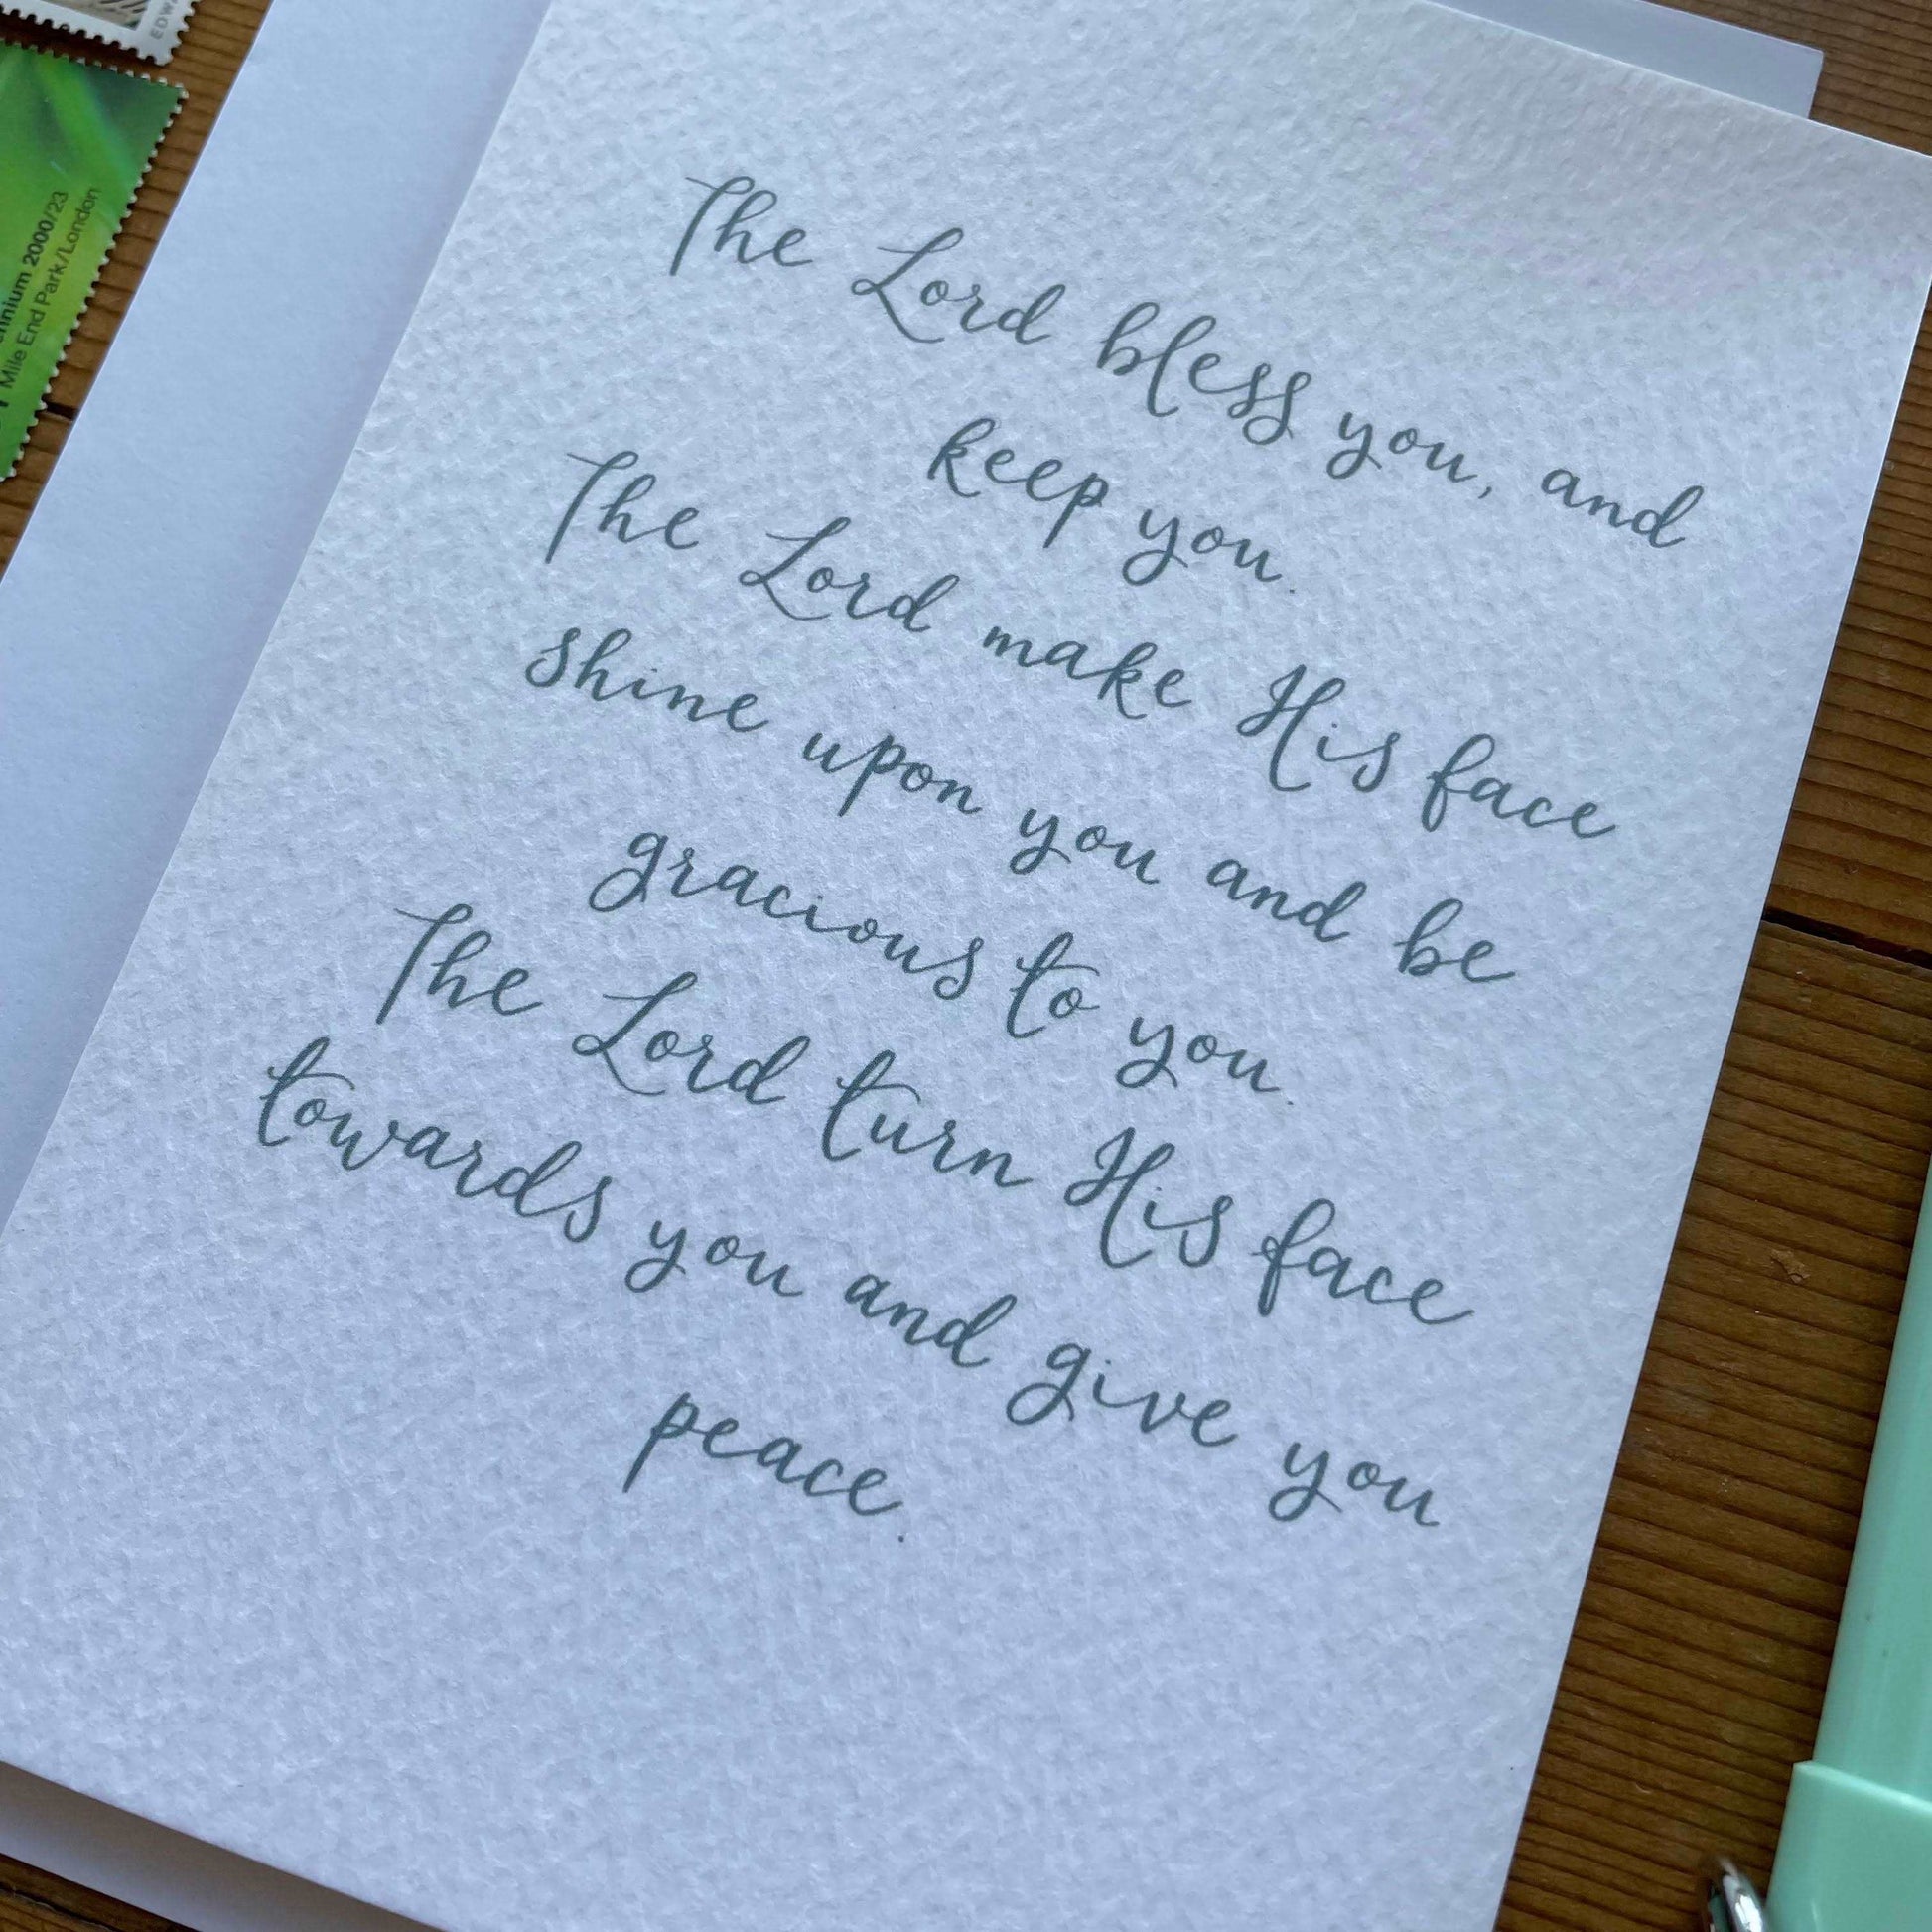 EDWA
nnium 2000/23
Mile End Park/London
The Lord bless you, and
keep you.
The Lord make His face
shine upon you and be
gracious to you.
The Lord turn His face
towards you and give you
peace.